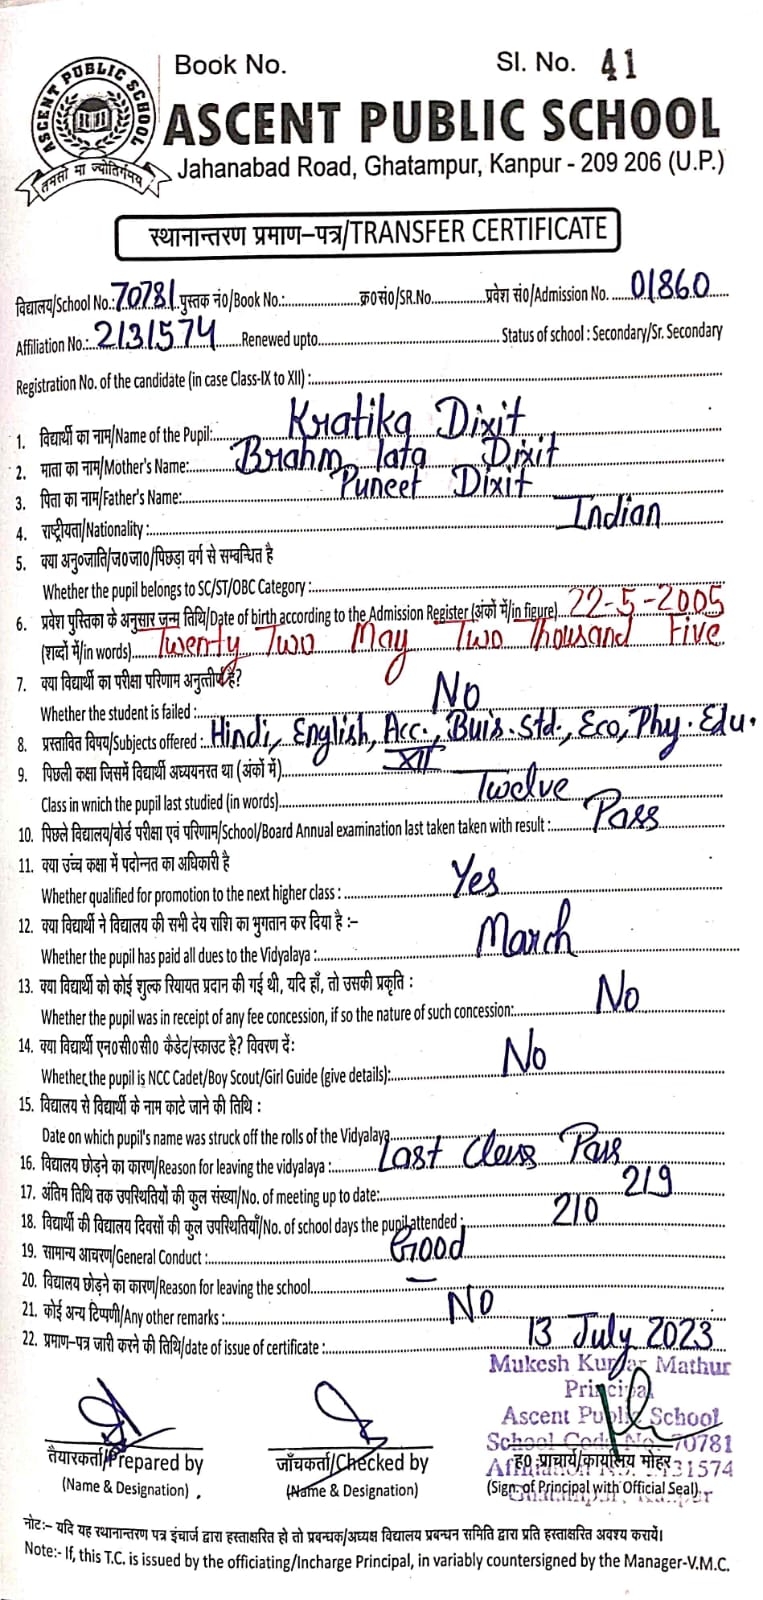 ASCENT PUBLIC SCHOOL
तमसो मा ज्योतिर्गमय
Book No. Sl. No. 41
ASCENT PUBLIC SCHOOL
Jahanabad Road, Ghatampur, Kanpur - 209 206 (U.P.)
स्थानान्तरण प्रमाण–पत्र/TRANSFER CERTIFICATE
विद्यालय/School No.: 70781 पुस्तक नं०/Book No.:.......... क्र०सं०/SR.No.......... प्रवेश सं०/Admission No. 01860
Affiliation No.: 2131574 Renewed upto.......... Status of school : Secondary/Sr. Secondary
Registration No. of the candidate (in case Class-IX to XII) :..........
1. विद्यार्थी का नाम/Name of the Pupil: Kratika Dixit
2. माता का नाम/Mother's Name: Brahm lata Dixit
3. पिता का नाम/Father's Name: Puneet Dixit
4. राष्ट्रीयता/Nationality : Indian
5. क्या अनु०जाति/ज०जा०/पिछड़ा वर्ग से सम्बन्धित है
Whether the pupil belongs to SC/ST/OBC Category :..........
6. प्रवेश पुस्तिका के अनुसार जन्म तिथि/Date of birth according to the Admission Register (अंकों में/in figure) 22-5-2005
(शब्दों में/in words) Twenty Two May Two Thousand Five
7. क्या विद्यार्थी का परीक्षा परिणाम अनुत्तीर्ण है?
Whether the student is failed : No
8. प्रस्तावित विषय/Subjects offered : Hindi, English, Acc., Buis. Std., Eco, Phy. Edu.
9. पिछली कक्षा जिसमें विद्यार्थी अध्ययनरत था (अंकों में) XII
Class in wnich the pupil last studied (in words) Twelve
10. पिछले विद्यालय/बोर्ड परीक्षा एवं परिणाम/School/Board Annual examination last taken taken with result : Pass
11. क्या उच्च कक्षा में पदोन्नत का अधिकारी है
Whether qualified for promotion to the next higher class : Yes
12. क्या विद्यार्थी ने विद्यालय की सभी देय राशि का भुगतान कर दिया है :–
Whether the pupil has paid all dues to the Vidyalaya : March
13. क्या विद्यार्थी को कोई शुल्क रियायत प्रदान की गई थी, यदि हाँ, तो उसकी प्रकृति :
Whether the pupil was in receipt of any fee concession, if so the nature of such concession: No
14. क्या विद्यार्थी एन०सी०सी० कैडेट/स्काउट है? विवरण दें:
Whether, the pupil is NCC Cadet/Boy Scout/Girl Guide (give details): No
15. विद्यालय से विद्यार्थी के नाम काटे जाने की तिथि :
Date on which pupil's name was struck off the rolls of the Vidyalaya..........
16. विद्यालय छोड़ने का कारण/Reason for leaving the vidyalaya : Last Class Pass
17. अंतिम तिथि तक उपस्थितियों की कुल संख्या/No. of meeting up to date: 219
18. विद्यार्थी की विद्यालय दिवसों की कुल उपस्थितियाँ/No. of school days the pupil attended : 210
19. सामान्य आचरण/General Conduct : Good
20. विद्यालय छोड़ने का कारण/Reason for leaving the school —
21. कोई अन्य टिप्पणी/Any other remarks : NO
22. प्रमाण–पत्र जारी करने की तिथि/date of issue of certificate : 13 July 2023
Mukesh Kumar Mathur
Principal
Ascent Public School
School Code No. 70781
Affiliation No. 2131574
Ghatampur, Kanpur
तैयारकर्ता/Prepared by जाँचकर्ता/Checked by ह० प्राचार्य/कार्यालय मोहर
(Name & Designation) . (Name & Designation) (Sign. of Principal with Official Seal)
नोट:– यदि यह स्थानान्तरण पत्र इंचार्ज द्वारा हस्ताक्षरित हो तो प्रबन्धक/अध्यक्ष विद्यालय प्रबन्धन समिति द्वारा प्रति हस्ताक्षरित अवश्य करायें।
Note:- If, this T.C. is issued by the officiating/Incharge Principal, in variably countersigned by the Manager-V.M.C.